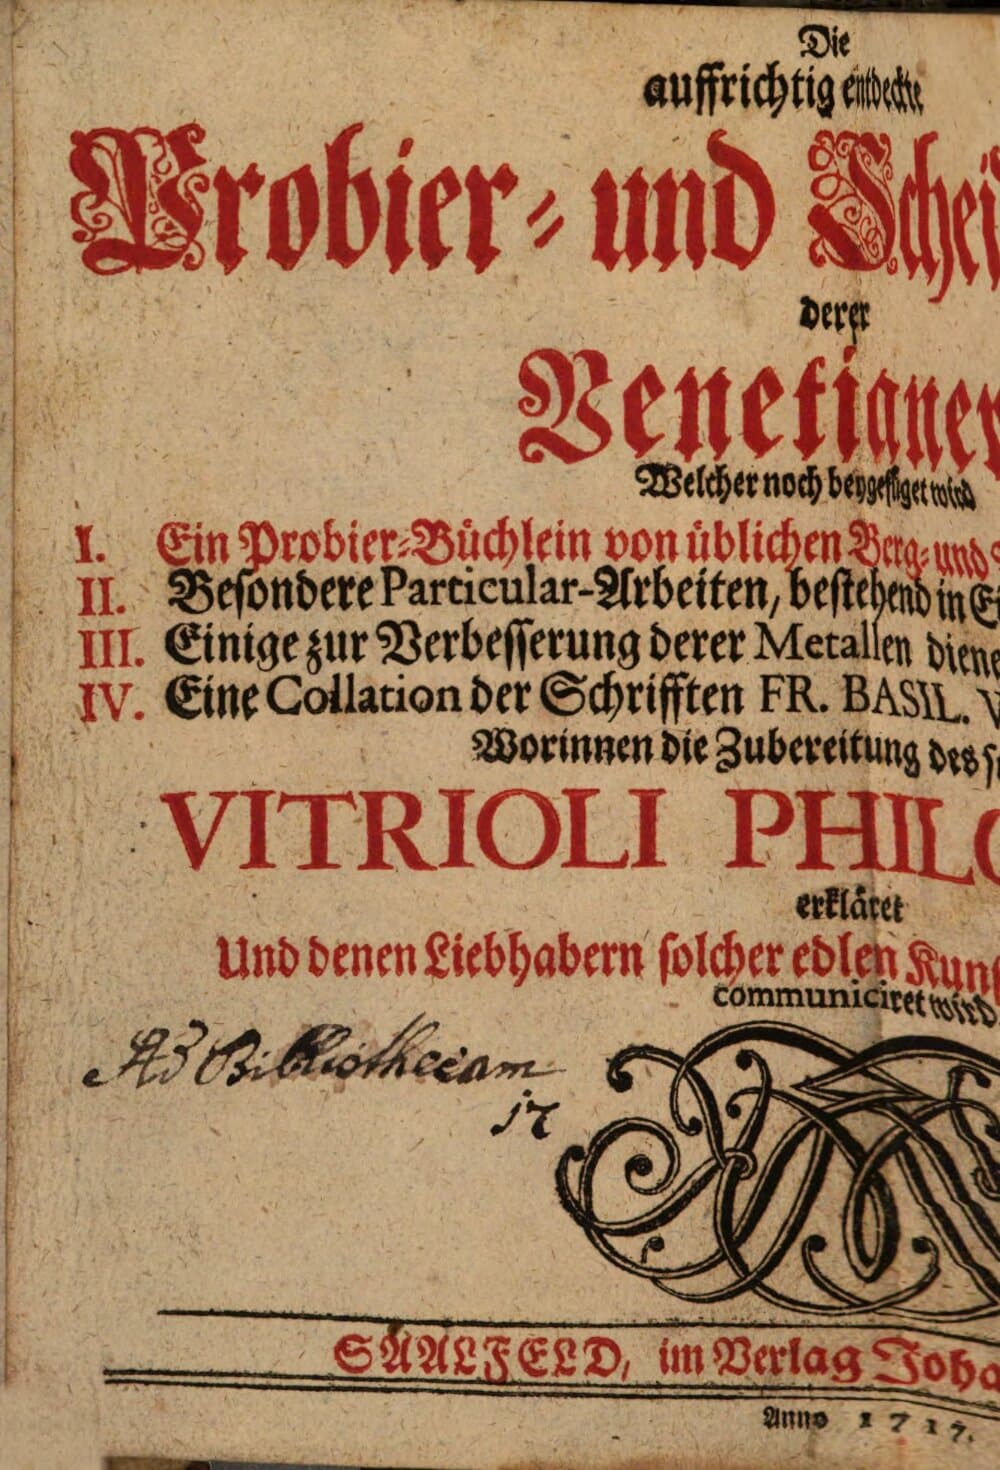 Die
auffrichtig entdeckte
Probier- und Schei
derer
Venetianer
Welcher noch beygefüget wird
I. Ein Probier-Büchlein von üblichen Berg- und
II. Besondere Particular-Arbeiten, bestehend in Ei
III. Einige zur Verbesserung derer Metallen diene
IV. Eine Collation der Schrifften FR. BASIL. V
Worinnen die Zubereitung des s
VITRIOLI PHILO
erkläret
Und denen Liebhabern solcher edlen Kuns
communiciret wird
Ad Bibliothecam
17
SAALFELD, im Verlag Joha
Anno 1717.